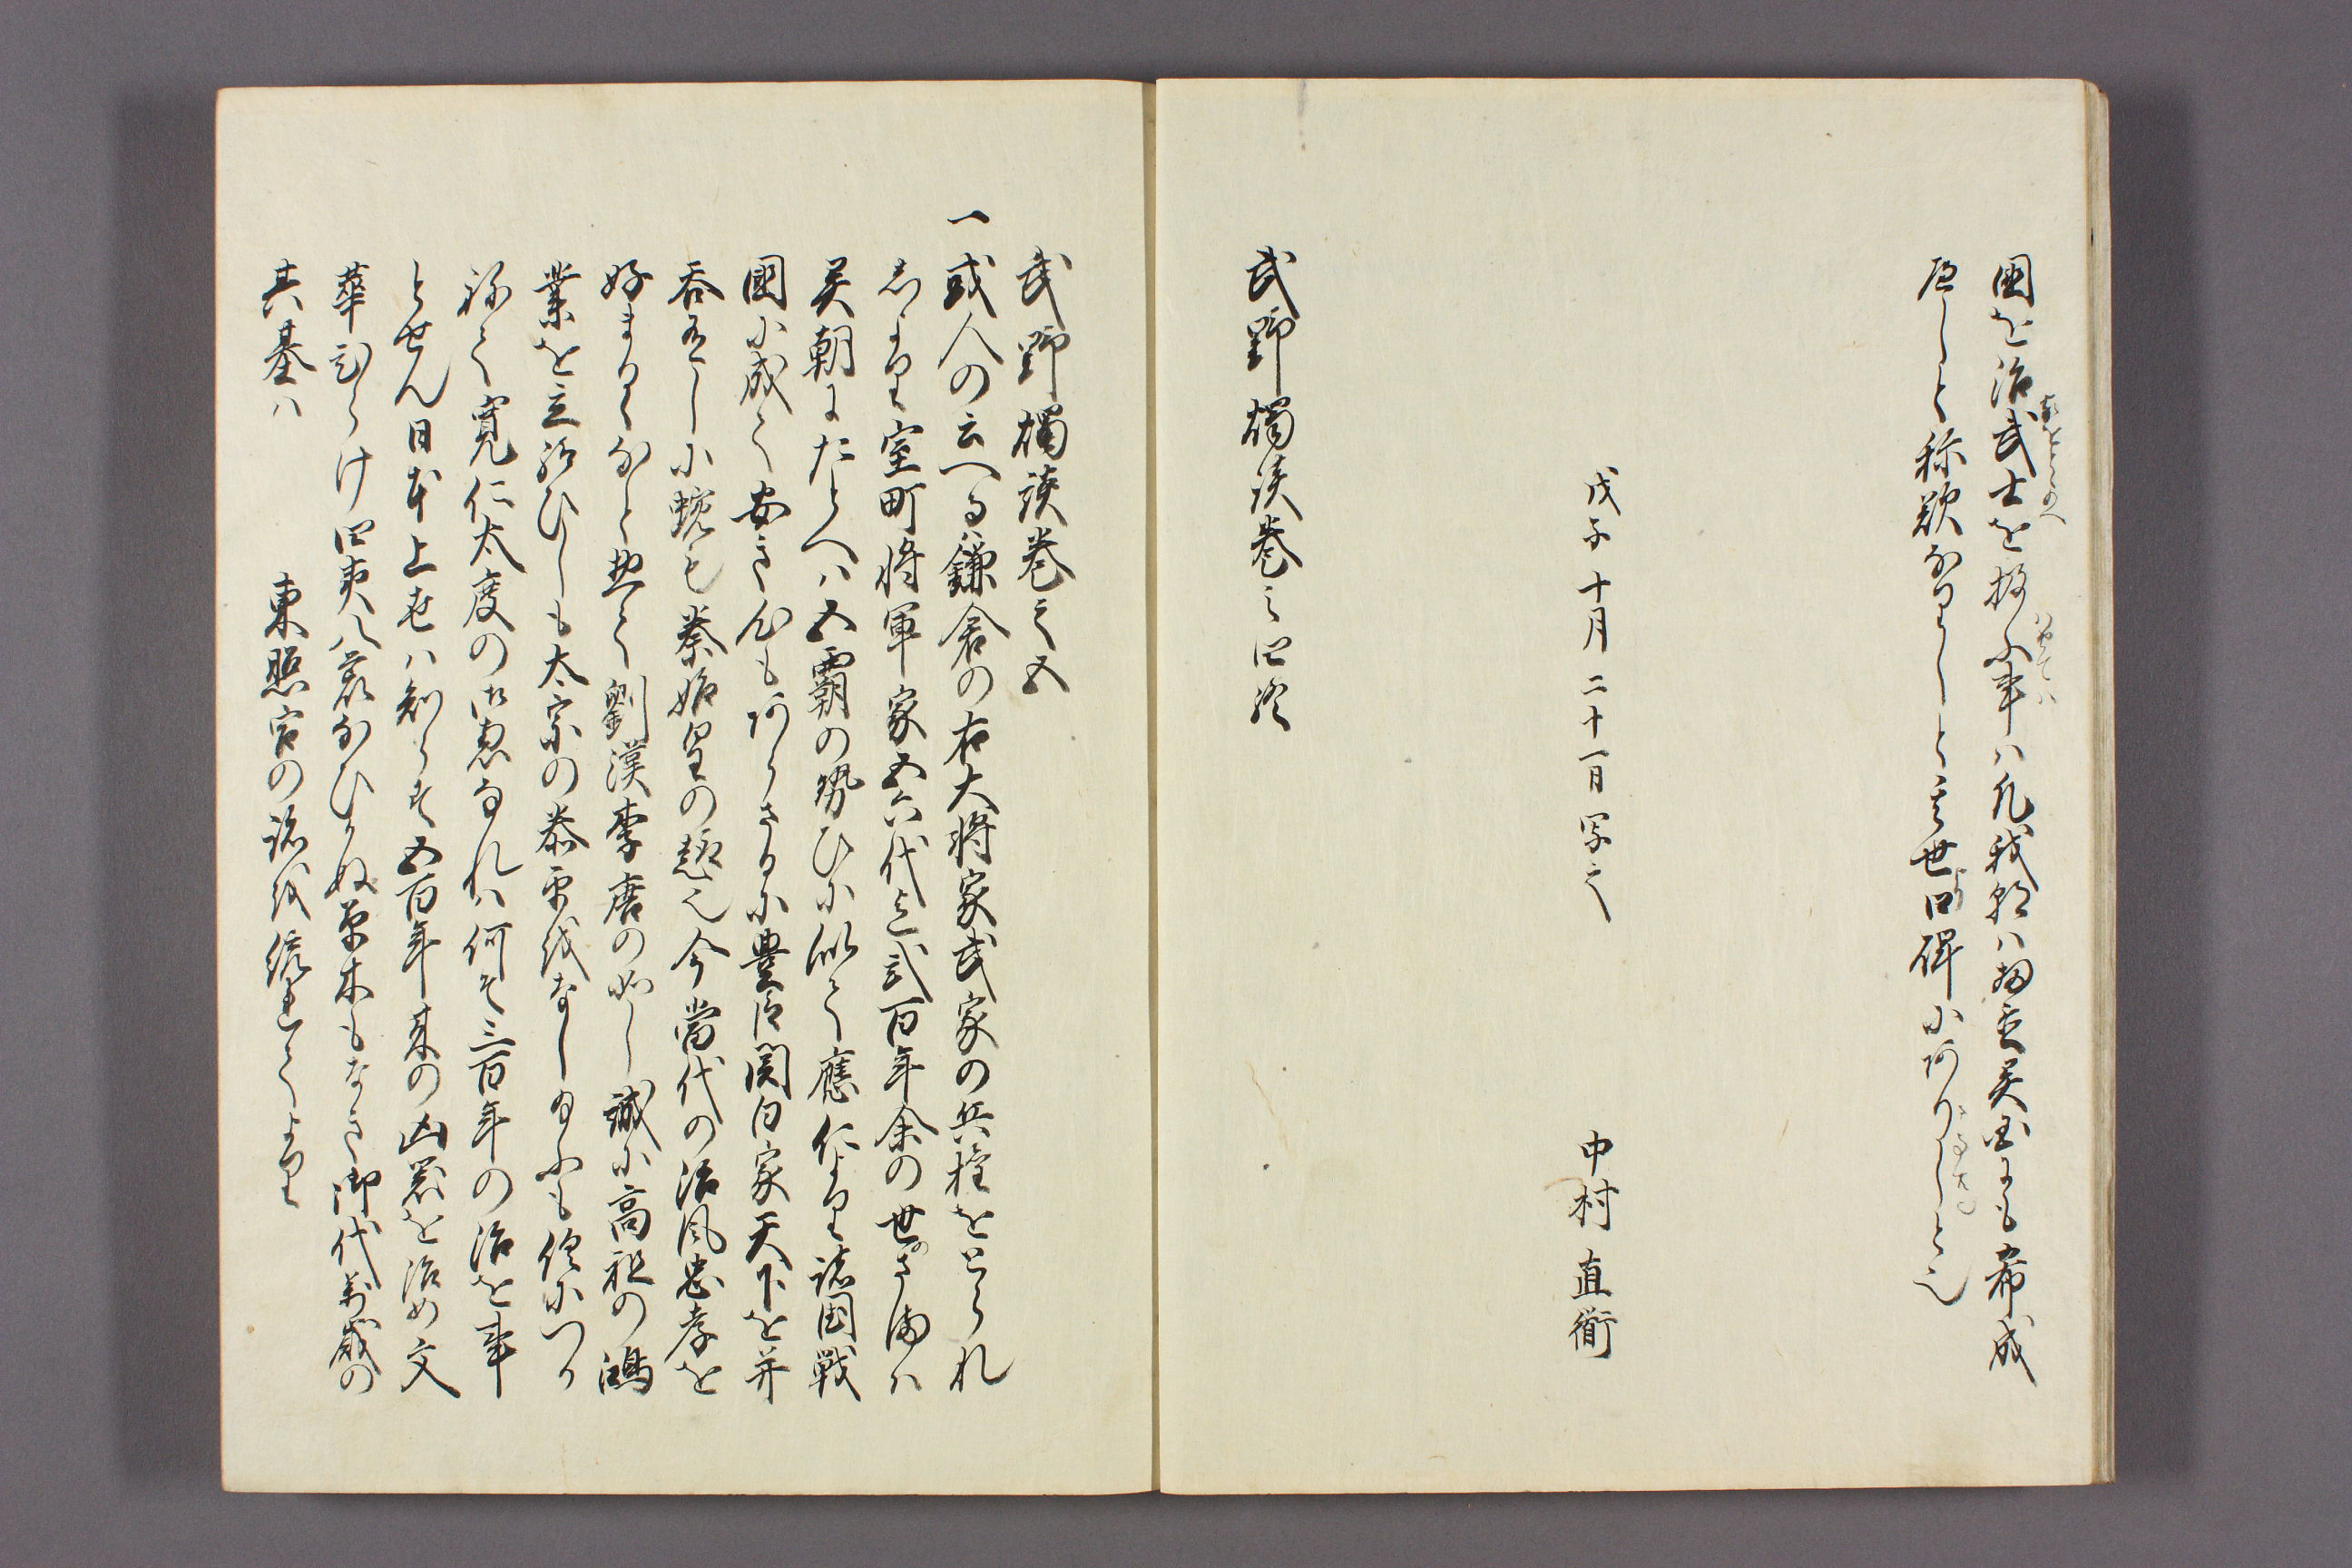 國を治武士を扱ふ事ハ凡我朝ハ勿論異国にも希成
へしと称歎ありしと其世口碑に阿りしと也
戊子十月二十一日写之
中村直衛
武野燭談巻之四終
武野燭談巻之五
一或人の云へるハ鎌倉の右大将家武家の兵権をとられ
しより室町将軍家五六代迄弐百年余の世のさまハ
異朝にたとへハ五覇の勢ひに似て應仁より諸国戦
國に成て安き心も阿らさるに豊臣関白家天下を并
呑有しに蛻も秦始皇の趣也今當代の治風忠孝を
好まるゝあと然て劉漢李唐の如し誠に高祖の鴻
業を立給ひしも太宗の泰平越なし給ふも僅につゝ
れて寛仁太度の御恵なれハ何そ三百年の治を事
とせん日本上世ハ知らす五百年来の凶悪を治め文
華ひらけ四夷八荒なひかぬ草木もなき御代万歳の
其基ハ
東照宮の諸越続てより